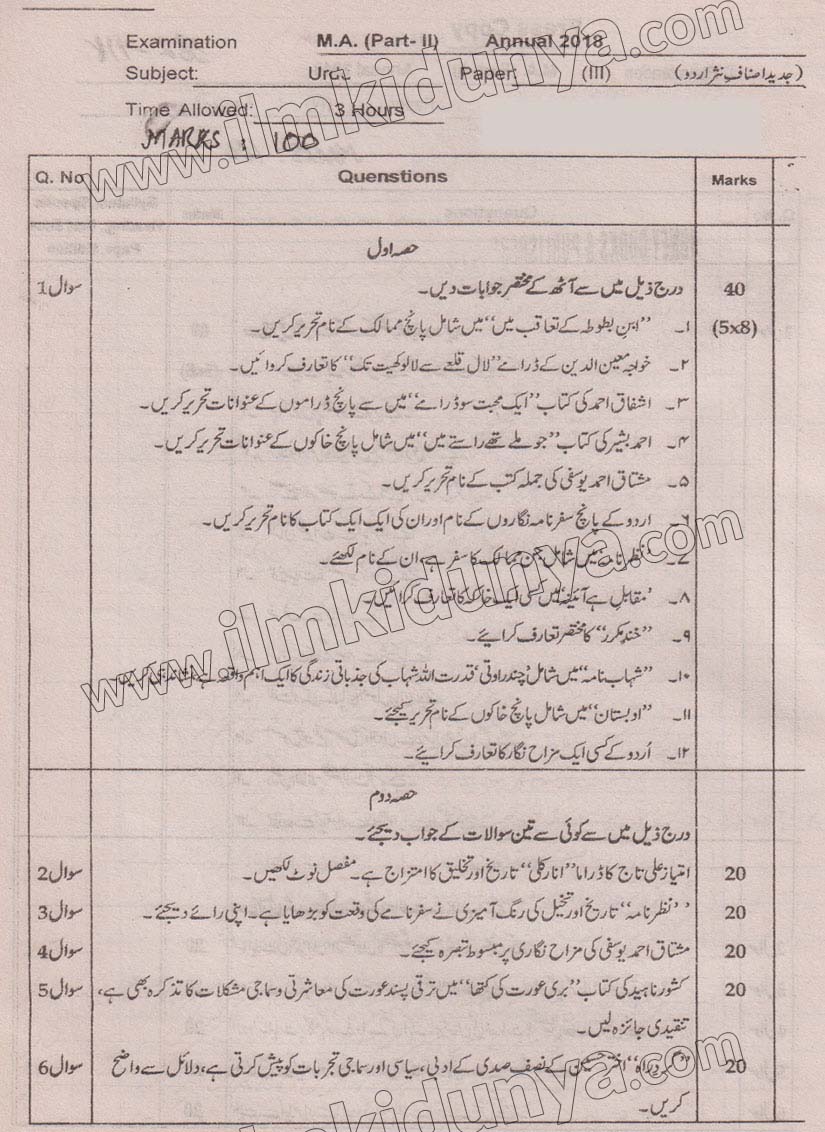 Examination M.A. (Part- II) Annual 2018
Subject: Urdu Paper: (III) (جدید اصنافِ نثر اردو)
Time Allowed: 3 Hours
MARKS : 100
Q. No Quenstions Marks
حصہ اول
سوال 1 درج ذیل میں سے آٹھ کے مختصر جوابات دیں۔ 40
۱۔ "ابنِ بطوطہ کے تعاقب میں" میں شامل پانچ ممالک کے نام تحریر کریں۔ (5x8)
۲۔ خواجہ معین الدین کے ڈرامے "لال قلعے سے لالو کھیت تک" کا تعارف کروائیں۔
۳۔ اشفاق احمد کی کتاب "ایک محبت سو ڈرامے" میں سے پانچ ڈراموں کے عنوانات تحریر کریں۔
۴۔ احمد بشیر کی کتاب "جو ملے تھے راستے میں" میں شامل پانچ خاکوں کے عنوانات تحریر کریں۔
۵۔ مشتاق احمد یوسفی کی جملہ کتب کے نام تحریر کریں۔
۶۔ اردو کے پانچ سفر نامہ نگاروں کے نام اور ان کی ایک ایک کتاب کا نام تحریر کریں۔
۷۔ 'نظر نامہ' میں شامل جن ممالک کا سفر ہے، ان کے نام لکھئے۔
۸۔ 'مقابل ہے آئینہ' میں کسی ایک خاکہ کا تعارف کرائیں۔
۹۔ "خندِ مکرر" کا مختصر تعارف کرائیے۔
۱۰۔ "شہاب نامہ" میں شامل 'چندراوتی' قدرت اللہ شہاب کی جذباتی زندگی کا ایک اہم واقعہ ہے،
۱۱۔ "اوبستان" میں شامل پانچ خاکوں کے نام تحریر کیجئے۔
۱۲۔ اُردو کے کسی ایک مزاح نگار کا تعارف کرائیے۔
حصہ دوم
درج ذیل میں سے کوئی سے تین سوالات کے جواب دیجئے۔
سوال 2 امتیاز علی تاج کا ڈراما "انارکلی" تاریخ اور تخلیق کا امتزاج ہے۔ مفصل نوٹ لکھیں۔ 20
سوال 3 "نظر نامہ" تاریخ اور تخیل کی رنگ آمیزی نے سفر نامے کی وقعت کو بڑھایا ہے۔ اپنی رائے دیجئے۔ 20
سوال 4 مشتاق احمد یوسفی کی مزاح نگاری پر مبسوط تبصرہ کیجئے۔ 20
سوال 5 کشور ناہید کی کتاب "بری عورت کی کتھا" میں ترقی پسند عورت کی معاشرتی و سماجی مشکلات کا تذکرہ بھی ہے، 20
تنقیدی جائزہ لیں۔
سوال 6 "گردِ راہ" اختر حسین کے نصف صدی کے ادبی، سیاسی اور سماجی تجربات کو پیش کرتی ہے، دلائل سے واضح 20
کریں۔
www.ilmkidunya.com
www.ilmkidunya.com
www.ilmkidunya.com